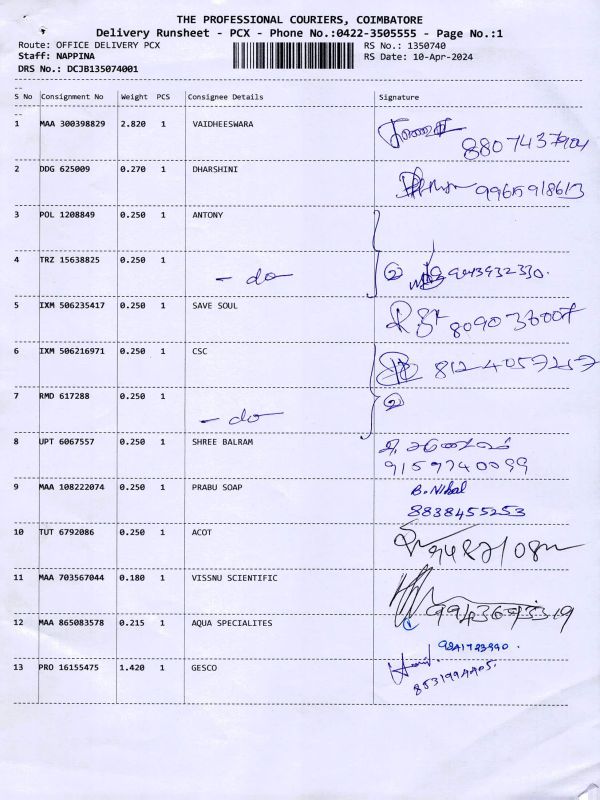 THE PROFESSIONAL COURIERS, COIMBATORE
Delivery Runsheet - PCX - Phone No.:0422-3505555 - Page No.:1
Route: OFFICE DELIVERY PCX RS No.: 1350740
Staff: NAPPINA RS Date: 10-Apr-2024
DRS No.: DCJB135074001
S No Consignment No Weight PCS Consignee Details Signature
1 MAA 300398829 2.820 1 VAIDHEESWARA
8807437904
2 DDG 625009 0.270 1 DHARSHINI
9965918613
3 POL 1208849 0.250 1 ANTONY
4 TRZ 15638825 0.250 1
- do 2 9843932330.
5 IXM 506235417 0.250 1 SAVE SOUL
8090036007
6 IXM 506216971 0.250 1 CSC
8124057257
7 RMD 617288 0.250 1
- do 2
8 UPT 6067557 0.250 1 SHREE BALRAM
9159740099
9 MAA 108222074 0.250 1 PRABU SOAP B. Nihal
8838455253
10 TUT 6792086 0.250 1 ACOT
11 MAA 703567044 0.180 1 VISSNU SCIENTIFIC
12 MAA 865083578 0.215 1 AQUA SPECIALITES
9841723990.
13 PRO 16155475 1.420 1 GESCO
8531994405.